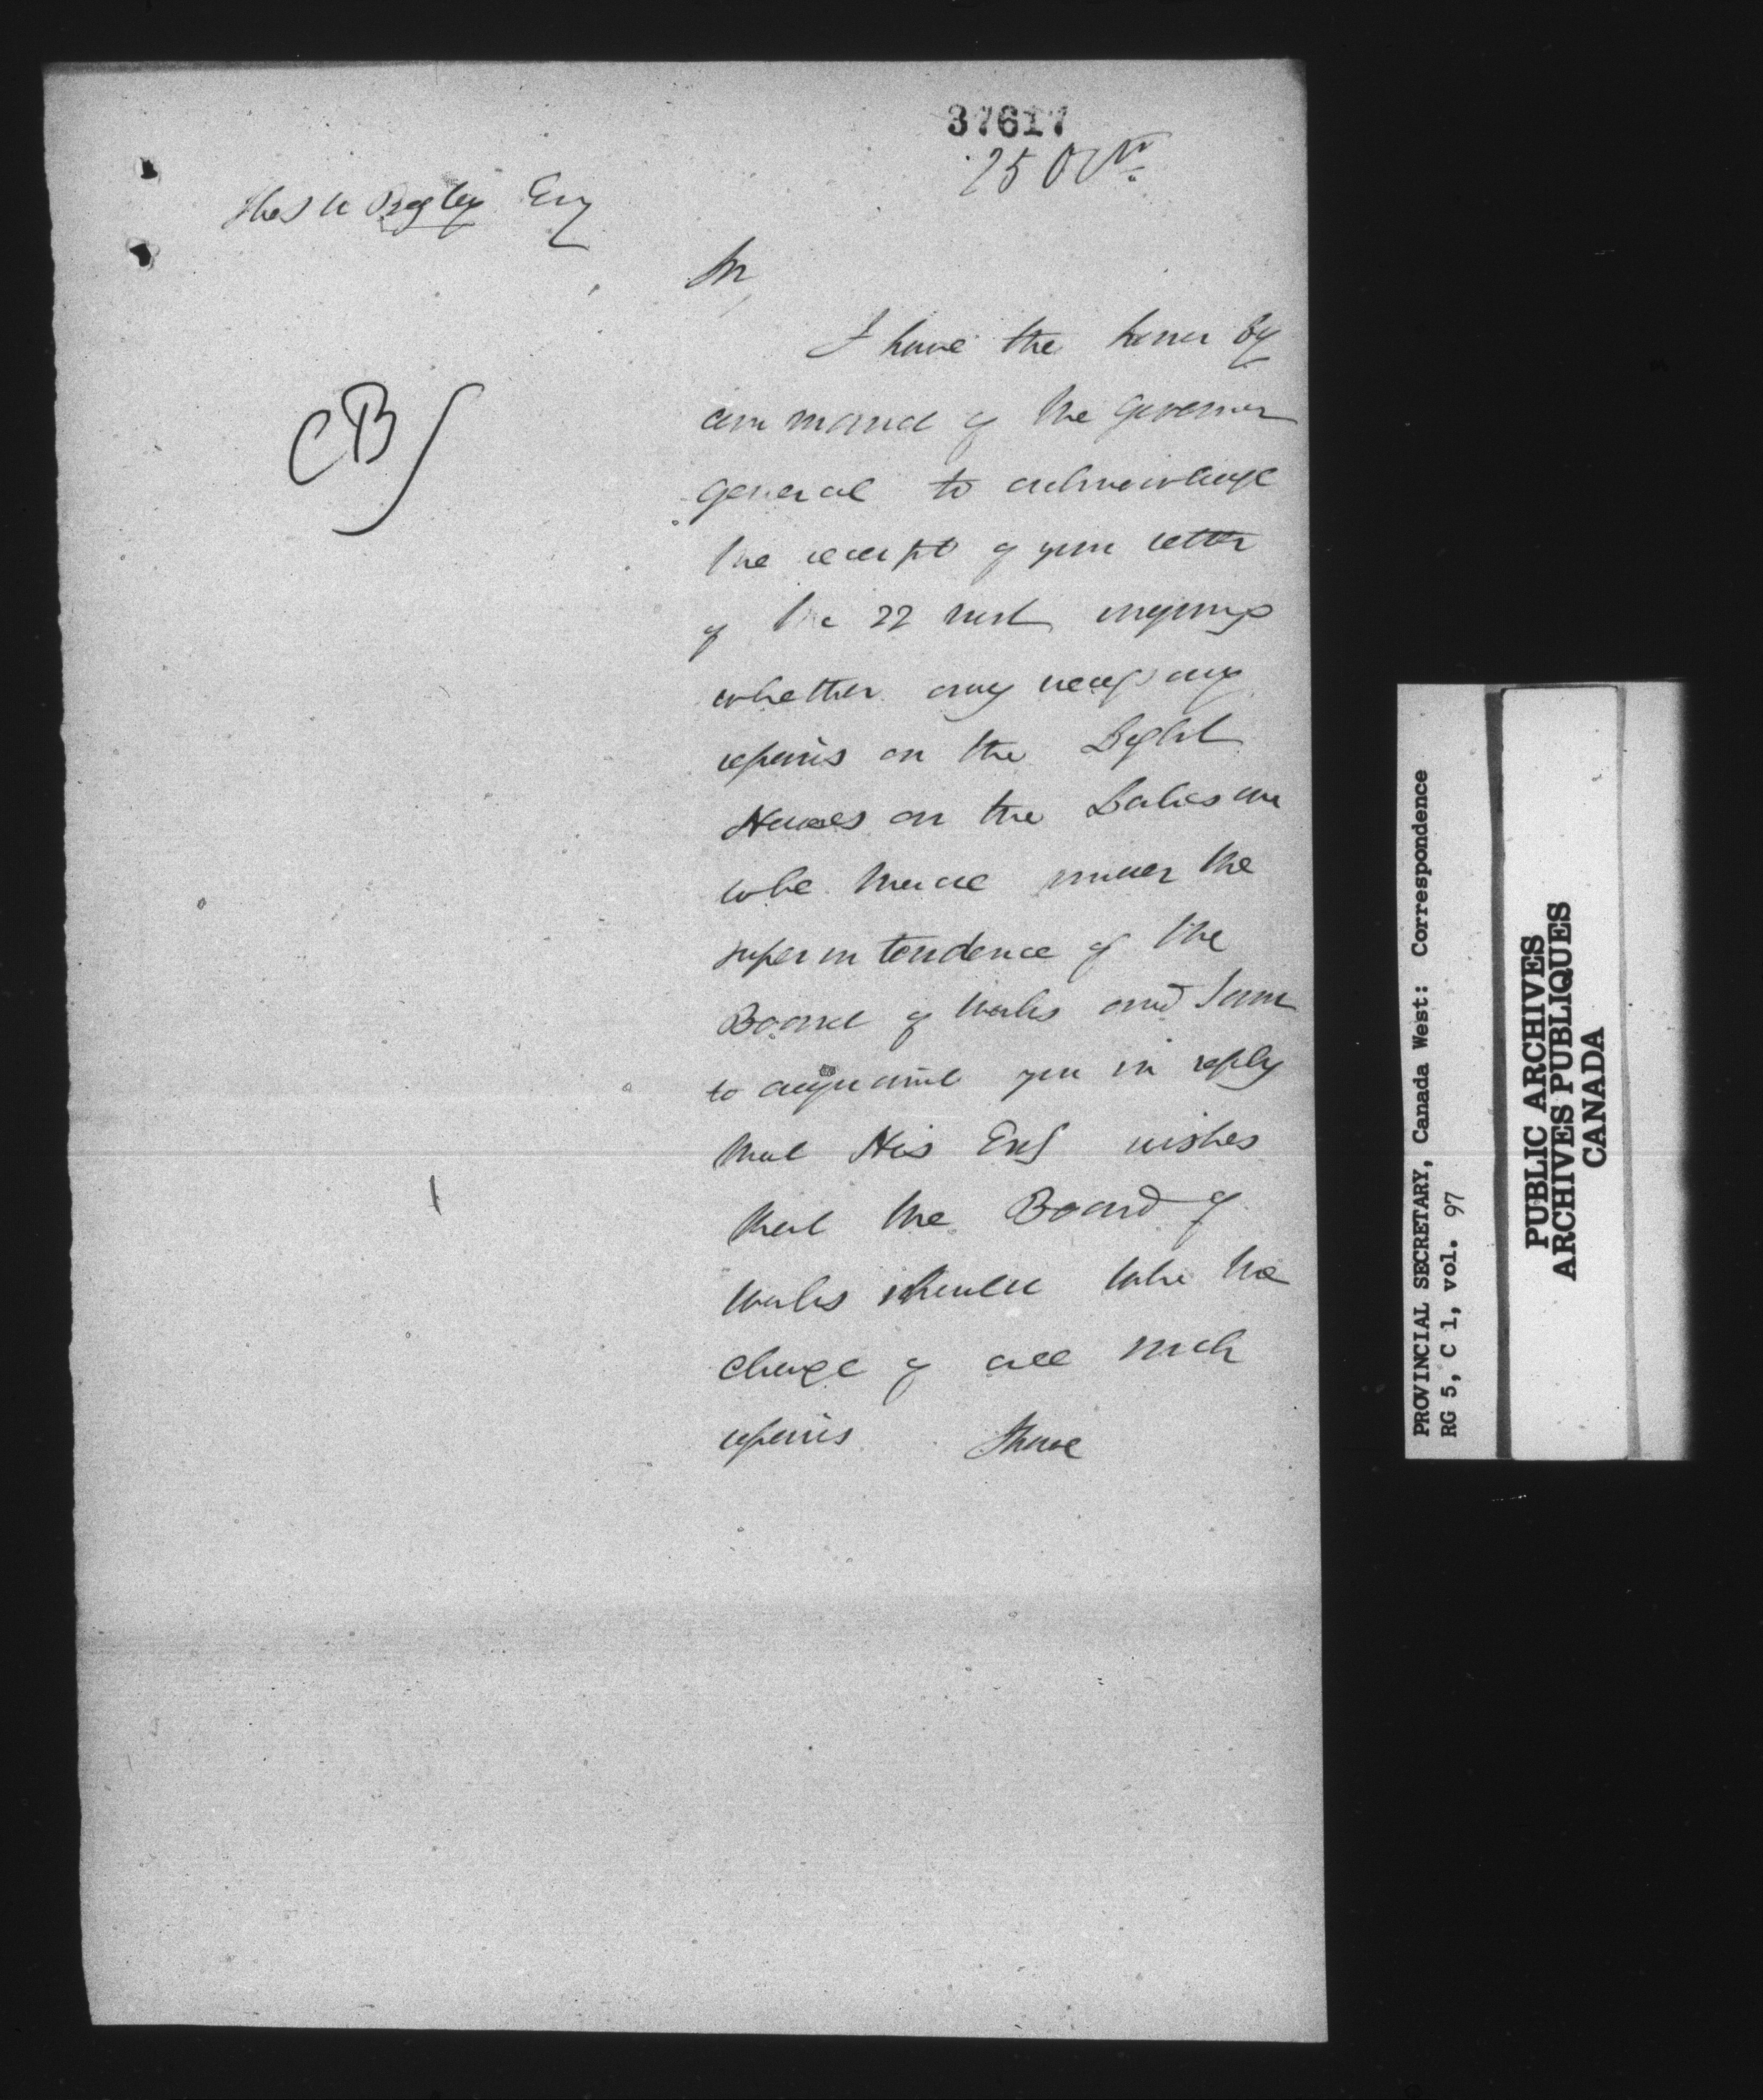 37617
25 Octr
Thos A Begley Esq
Sir
I have the honor by
command of the Governor
General to acknowledge
the receipt of your letter
of the 22 inst enquiring
whether any necessary
repairs on the Light
Houses on the Lakes are
to be made under the
superintendence of the
Board of Works and I am
to acquaint you in reply
that His Exy wishes
that the Board of
Works should take the
charge of all such
repairs I have
PROVINCIAL SECRETARY, Canada West: Correspondence
RG 5, C 1, vol. 97
PUBLIC ARCHIVES
ARCHIVES PUBLIQUES
CANADA